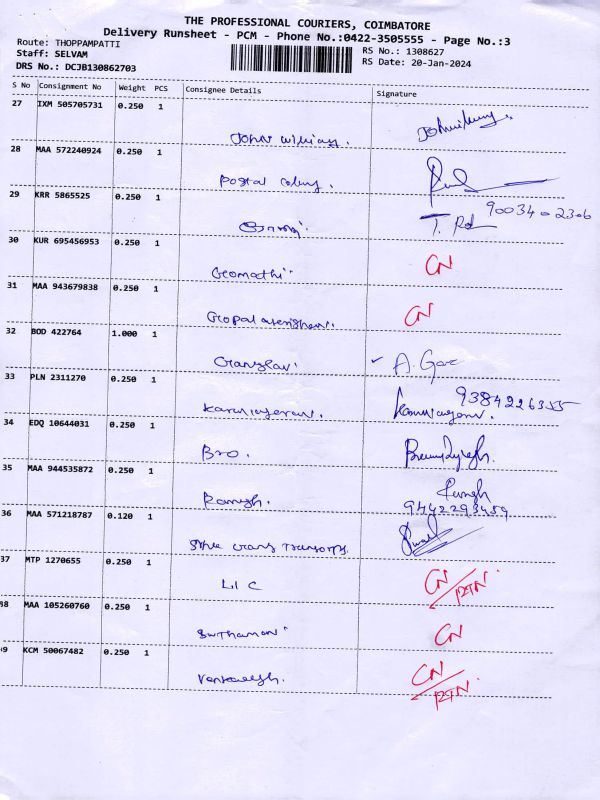 THE PROFESSIONAL COURIERS, COIMBATORE
Delivery Runsheet - PCM - Phone No.:0422-3505555 - Page No.:3
Route: THOPPAMPATTI
RS No.: 1308627
Staff: SELVAM
RS Date: 20-Jan-2024
DRS No.: DCJB130862703
S No Consignment No Weight PCS Consignee Details Signature
27 IXM 505705731 0.250 1
John william.
28 MAA 572240924 0.250 1
Postal colony.
29 KRR 5865525 0.250 1
90034 02306
30 KUR 695456953 0.250 1
Gomathi CN
31 MAA 943679838 0.250 1
CN
32 BOD 422764 1.000 1
A.
33 PLN 2311270 0.250 1
9384226355
34 EDQ 10644031 0.250 1
Bro.
35 MAA 944535872 0.250 1
Ramesh.
9442293459
36 MAA 571218787 0.120 1
37 MTP 1270655 0.250 1
LIC CN/RTN
38 MAA 105260760 0.250 1
CN
39 KCM 50067482 0.250 1
Venkatesh. CN/RTN